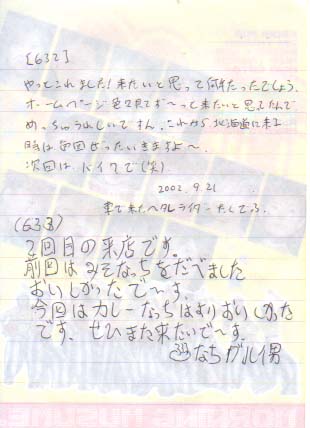 [632]
やってこれました！来たいと思って何年たったでしょう。
ホームページを見てず〜っと来たいと思ってたんで
めっちゃうれしいです。これから北海道に来る
時は毎回ぜったいきますよ〜
次回は、バイクで(笑)
2002.9.21
車で来たヘタレライダー
(633)
2回目の来店です。
前回はみそなっちをたべました
おいしかったで〜す。
今回はカレーなっちはよりおいしかった
です。ぜひまた来たいで〜す。
なち
男
MORNING MUSUME.